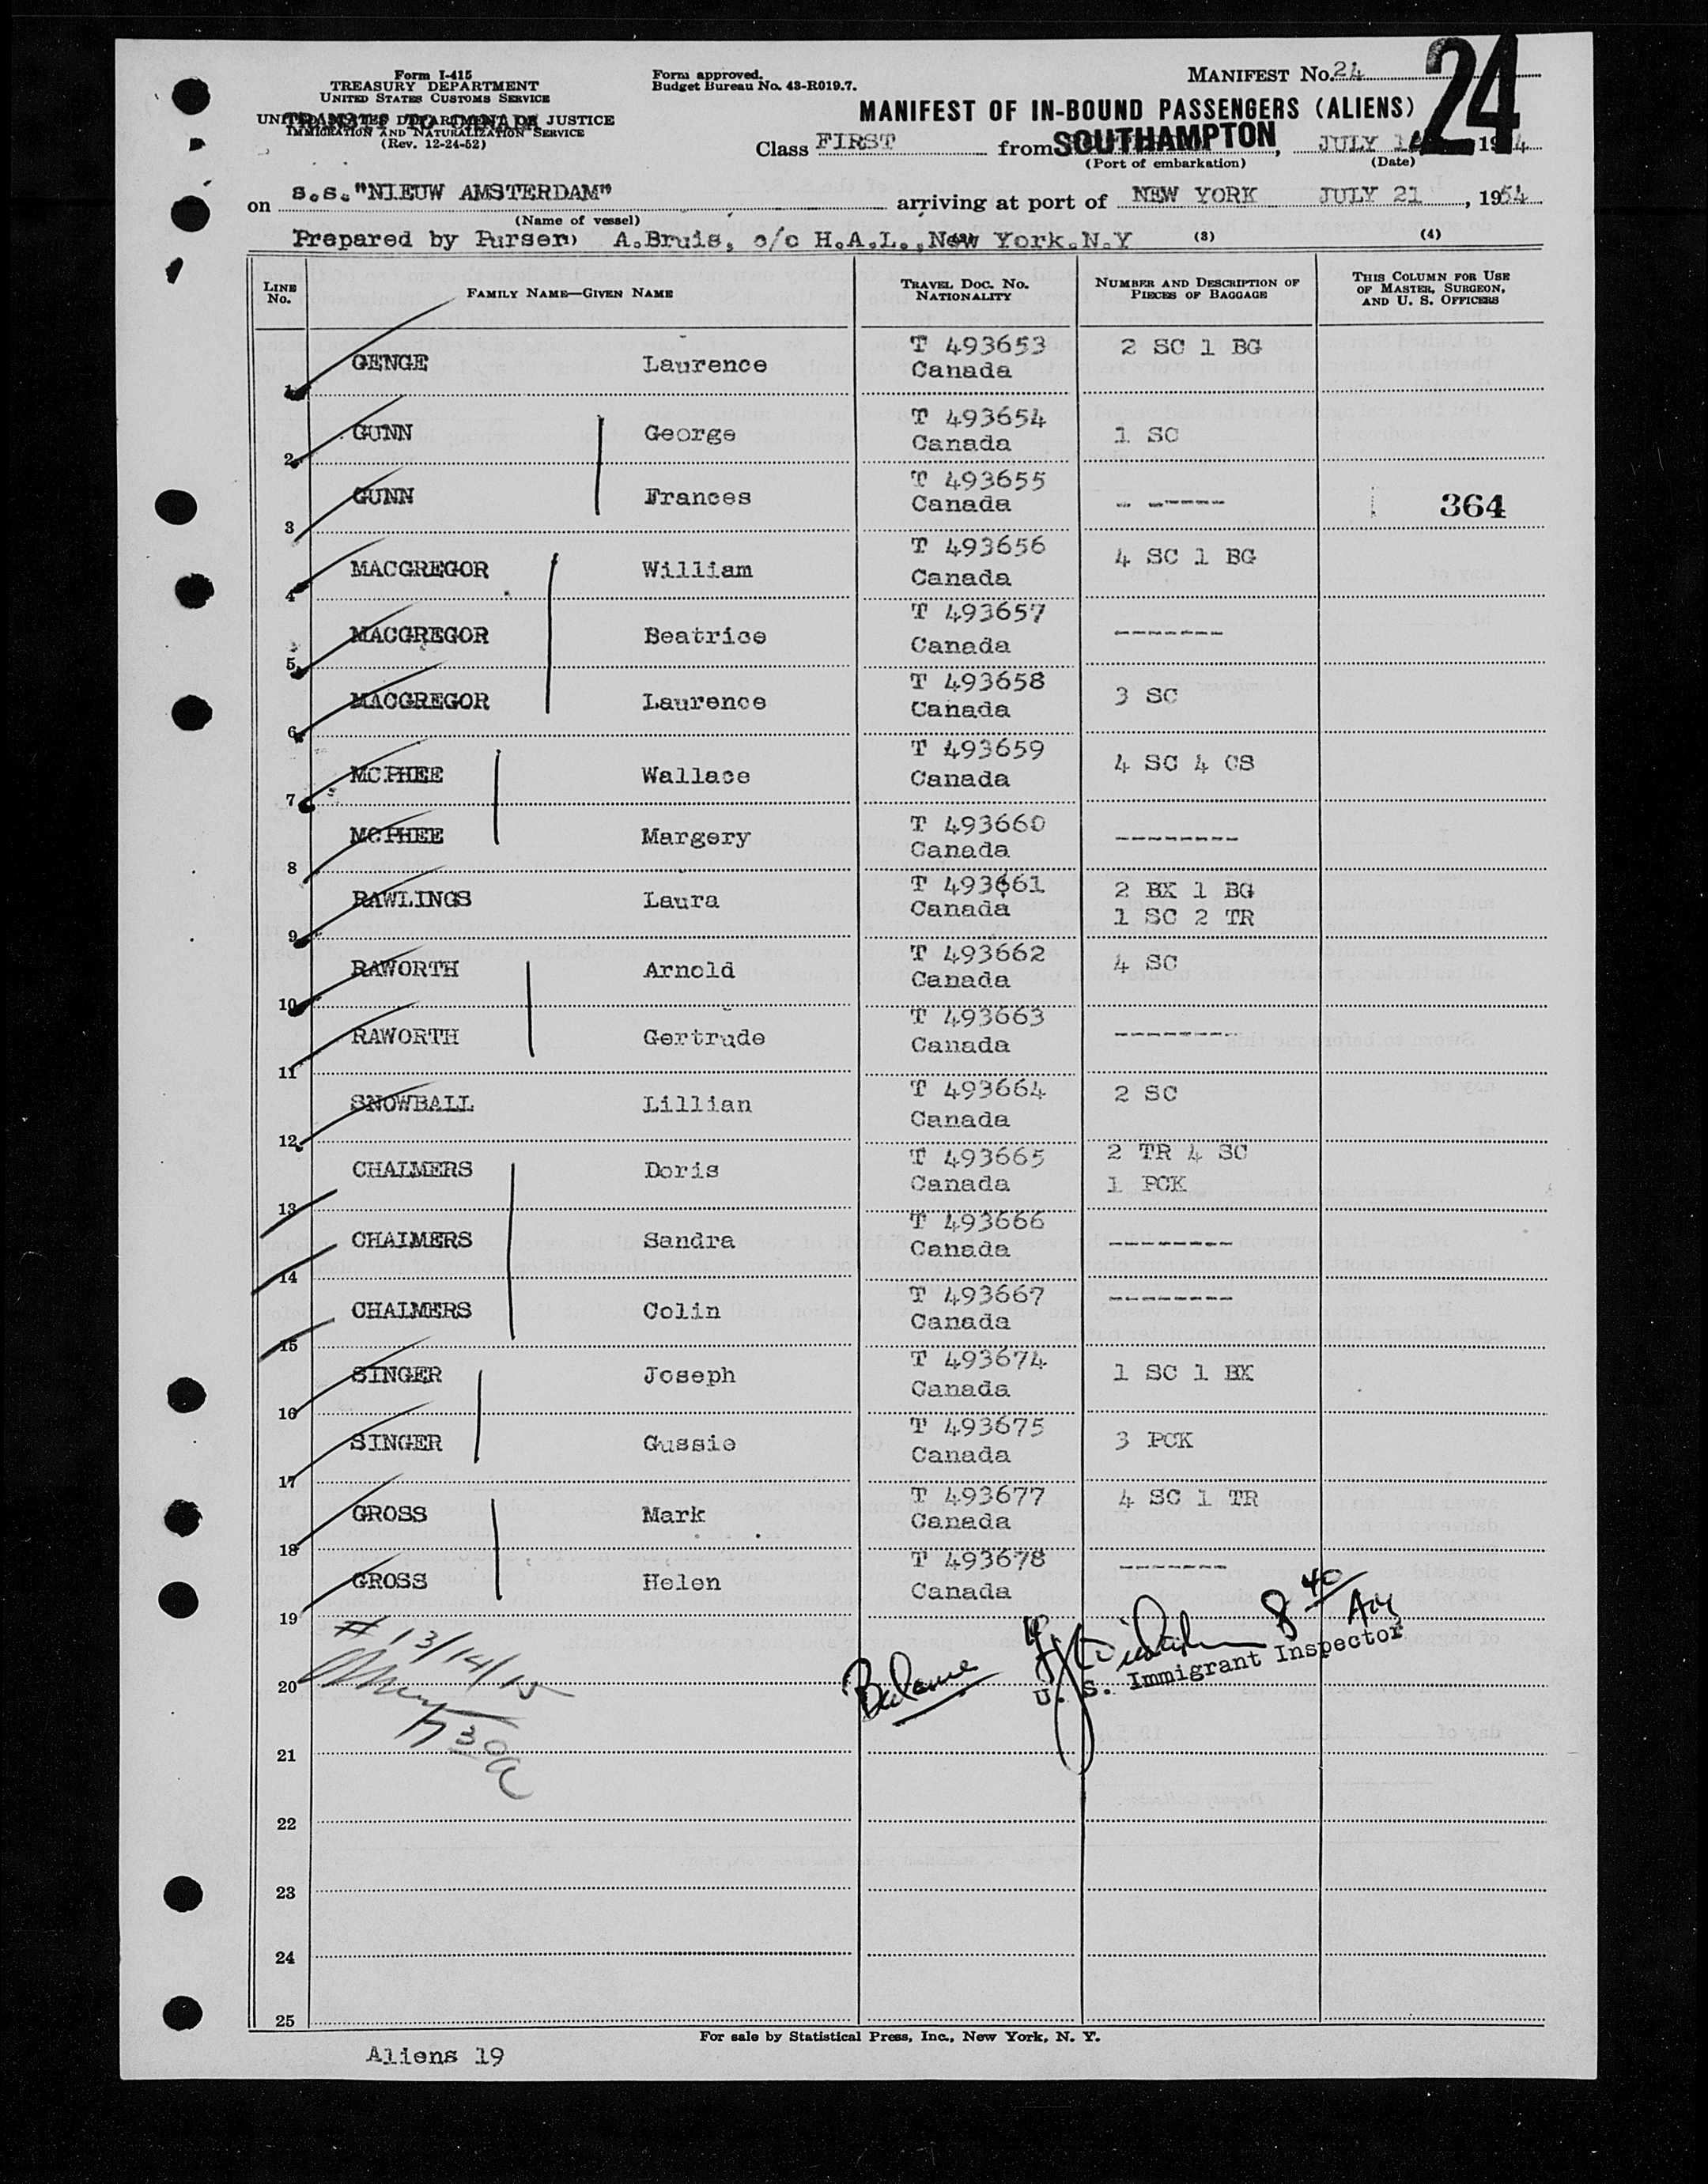 Form I-415
TREASURY DEPARTMENT
UNITED STATES CUSTOMS SERVICE
UNITED STATES DEPARTMENT OF JUSTICE
TRANSIT TO CANADA
IMMIGRATION AND NATURALIZATION SERVICE
(Rev. 12-24-52)
Form approved.
Budget Bureau No. 43-R019.7.
MANIFEST No. 24
24
MANIFEST OF IN-BOUND PASSENGERS (ALIENS)
Class FIRST from SOUTHAMPTON, JULY 1 , 19 4
(Port of embarkation) (Date)
on s.s."NIEUW AMSTERDAM" arriving at port of NEW YORK JULY 21, 1954
(Name of vessel)
Prepared by Purser) A.Bruis, c/o H.A.L.,New York.N.Y (3) (4)
LINE No. FAMILY NAME—GIVEN NAME TRAVEL DOC. No. NATIONALITY NUMBER AND DESCRIPTION OF PIECES OF BAGGAGE THIS COLUMN FOR USE OF MASTER, SURGEON, AND U. S. OFFICERS
1 GENGE Laurence T 493653 2 SC 1 BG
Canada
2 GUNN George T 493654 1 SC
Canada
3 GUNN Frances T 493655 -- ----- 364
Canada
4 MACGREGOR William T 493656 4 SC 1 BG
Canada
5 MACGREGOR Beatrice T 493657 -------
Canada
6 MACGREGOR Laurence T 493658 3 SC
Canada
7 MCPHEE Wallace T 493659 4 SC 4 CS
Canada
8 MCPHEE Margery T 493660 --------
Canada
9 RAWLINGS Laura T 493661 2 BX 1 BG
Canada 1 SC 2 TR
10 RAWORTH Arnold T 493662 4 SC
Canada
11 RAWORTH Gertrude T 493663 --------
Canada
12 SNOWBALL Lillian T 493664 2 SC
Canada
13 CHALMERS Doris T 493665 2 TR 4 SC
Canada 1 PCK
14 CHALMERS Sandra T 493666 --------
Canada
15 CHALMERS Colin T 493667 --------
Canada
16 SINGER Joseph T 493674 1 SC 1 BX
Canada
17 SINGER Gussie T 493675 3 PCK
Canada
18 GROSS Mark T 493677 4 SC 1 TR
Canada
19 GROSS Helen T 493678 -------
Canada
# 13/14/15
8 40
Balance
U. S. Immigrant Inspector
20
7 30 a
21
22
23
24
25
For sale by Statistical Press, Inc., New York, N. Y.
Aliens 19